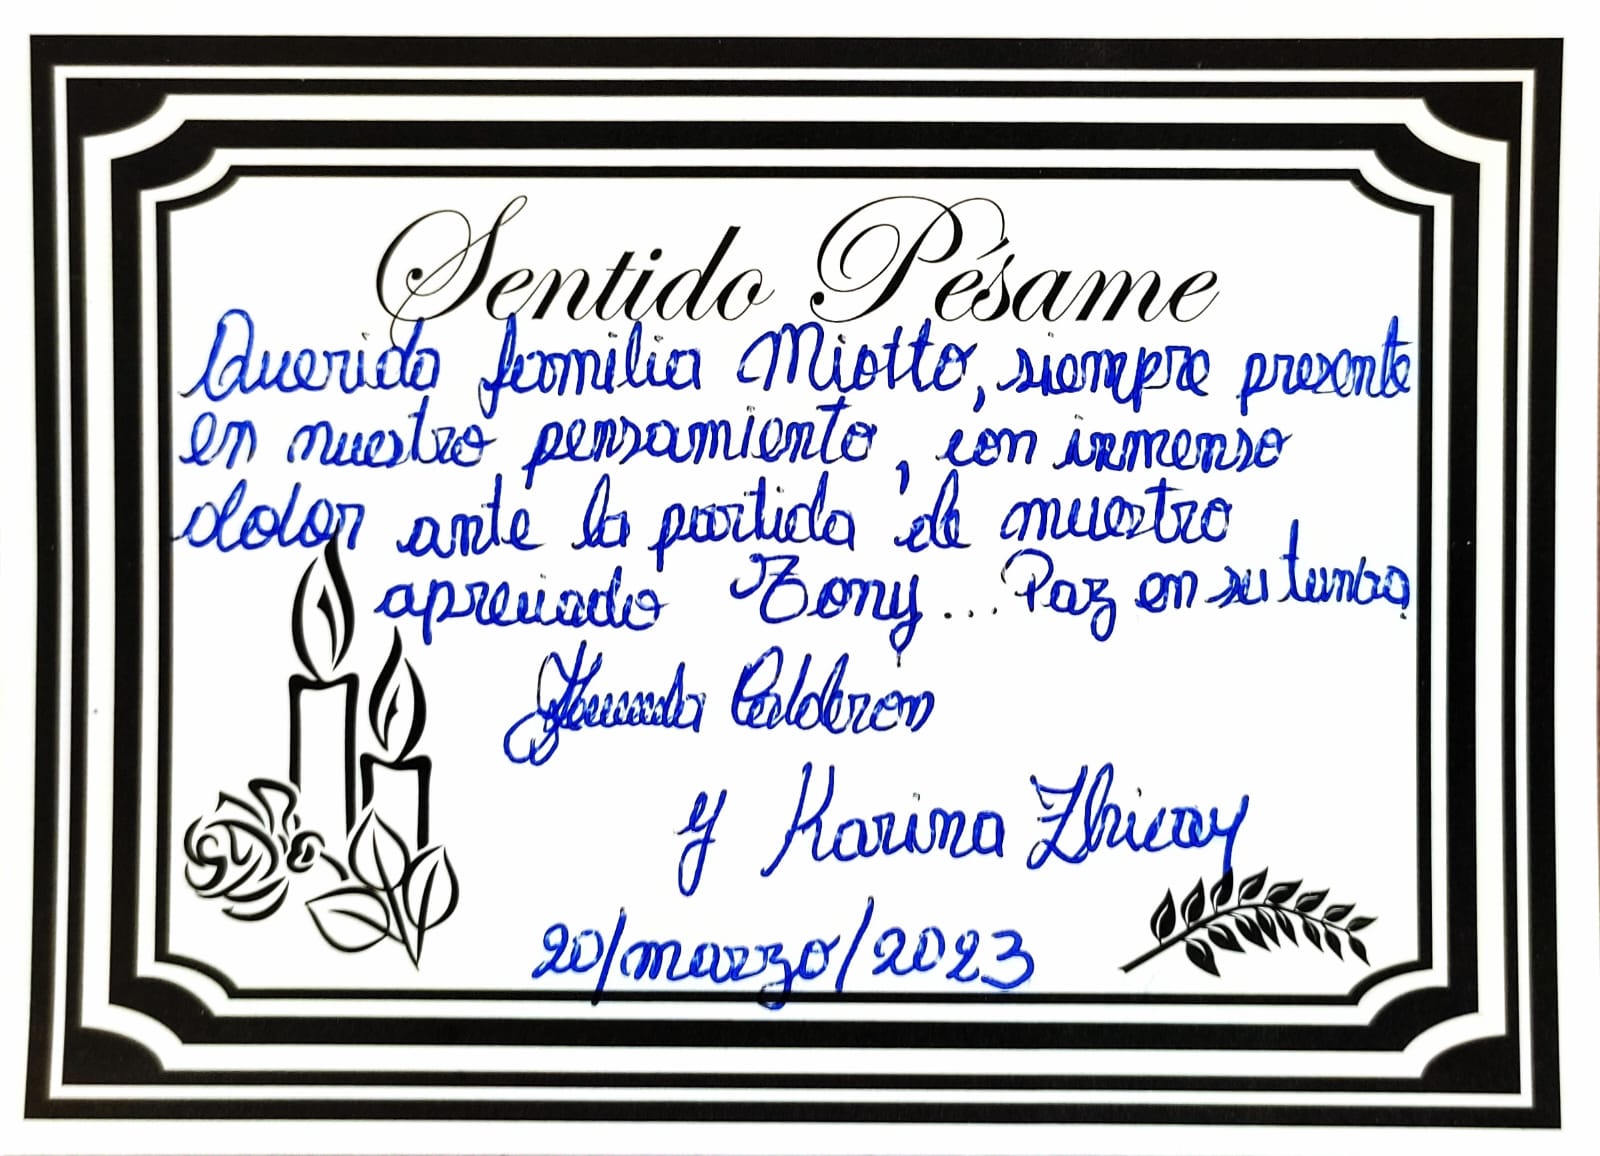 Sentido Pésame
Querida familia Miotto, siempre presente
en nuestro pensamiento, con inmenso
dolor ante la partida de nuestro
apreciado Tony... Paz en su tumba.
Calderón
y Karina Zhicay
20/marzo/2023